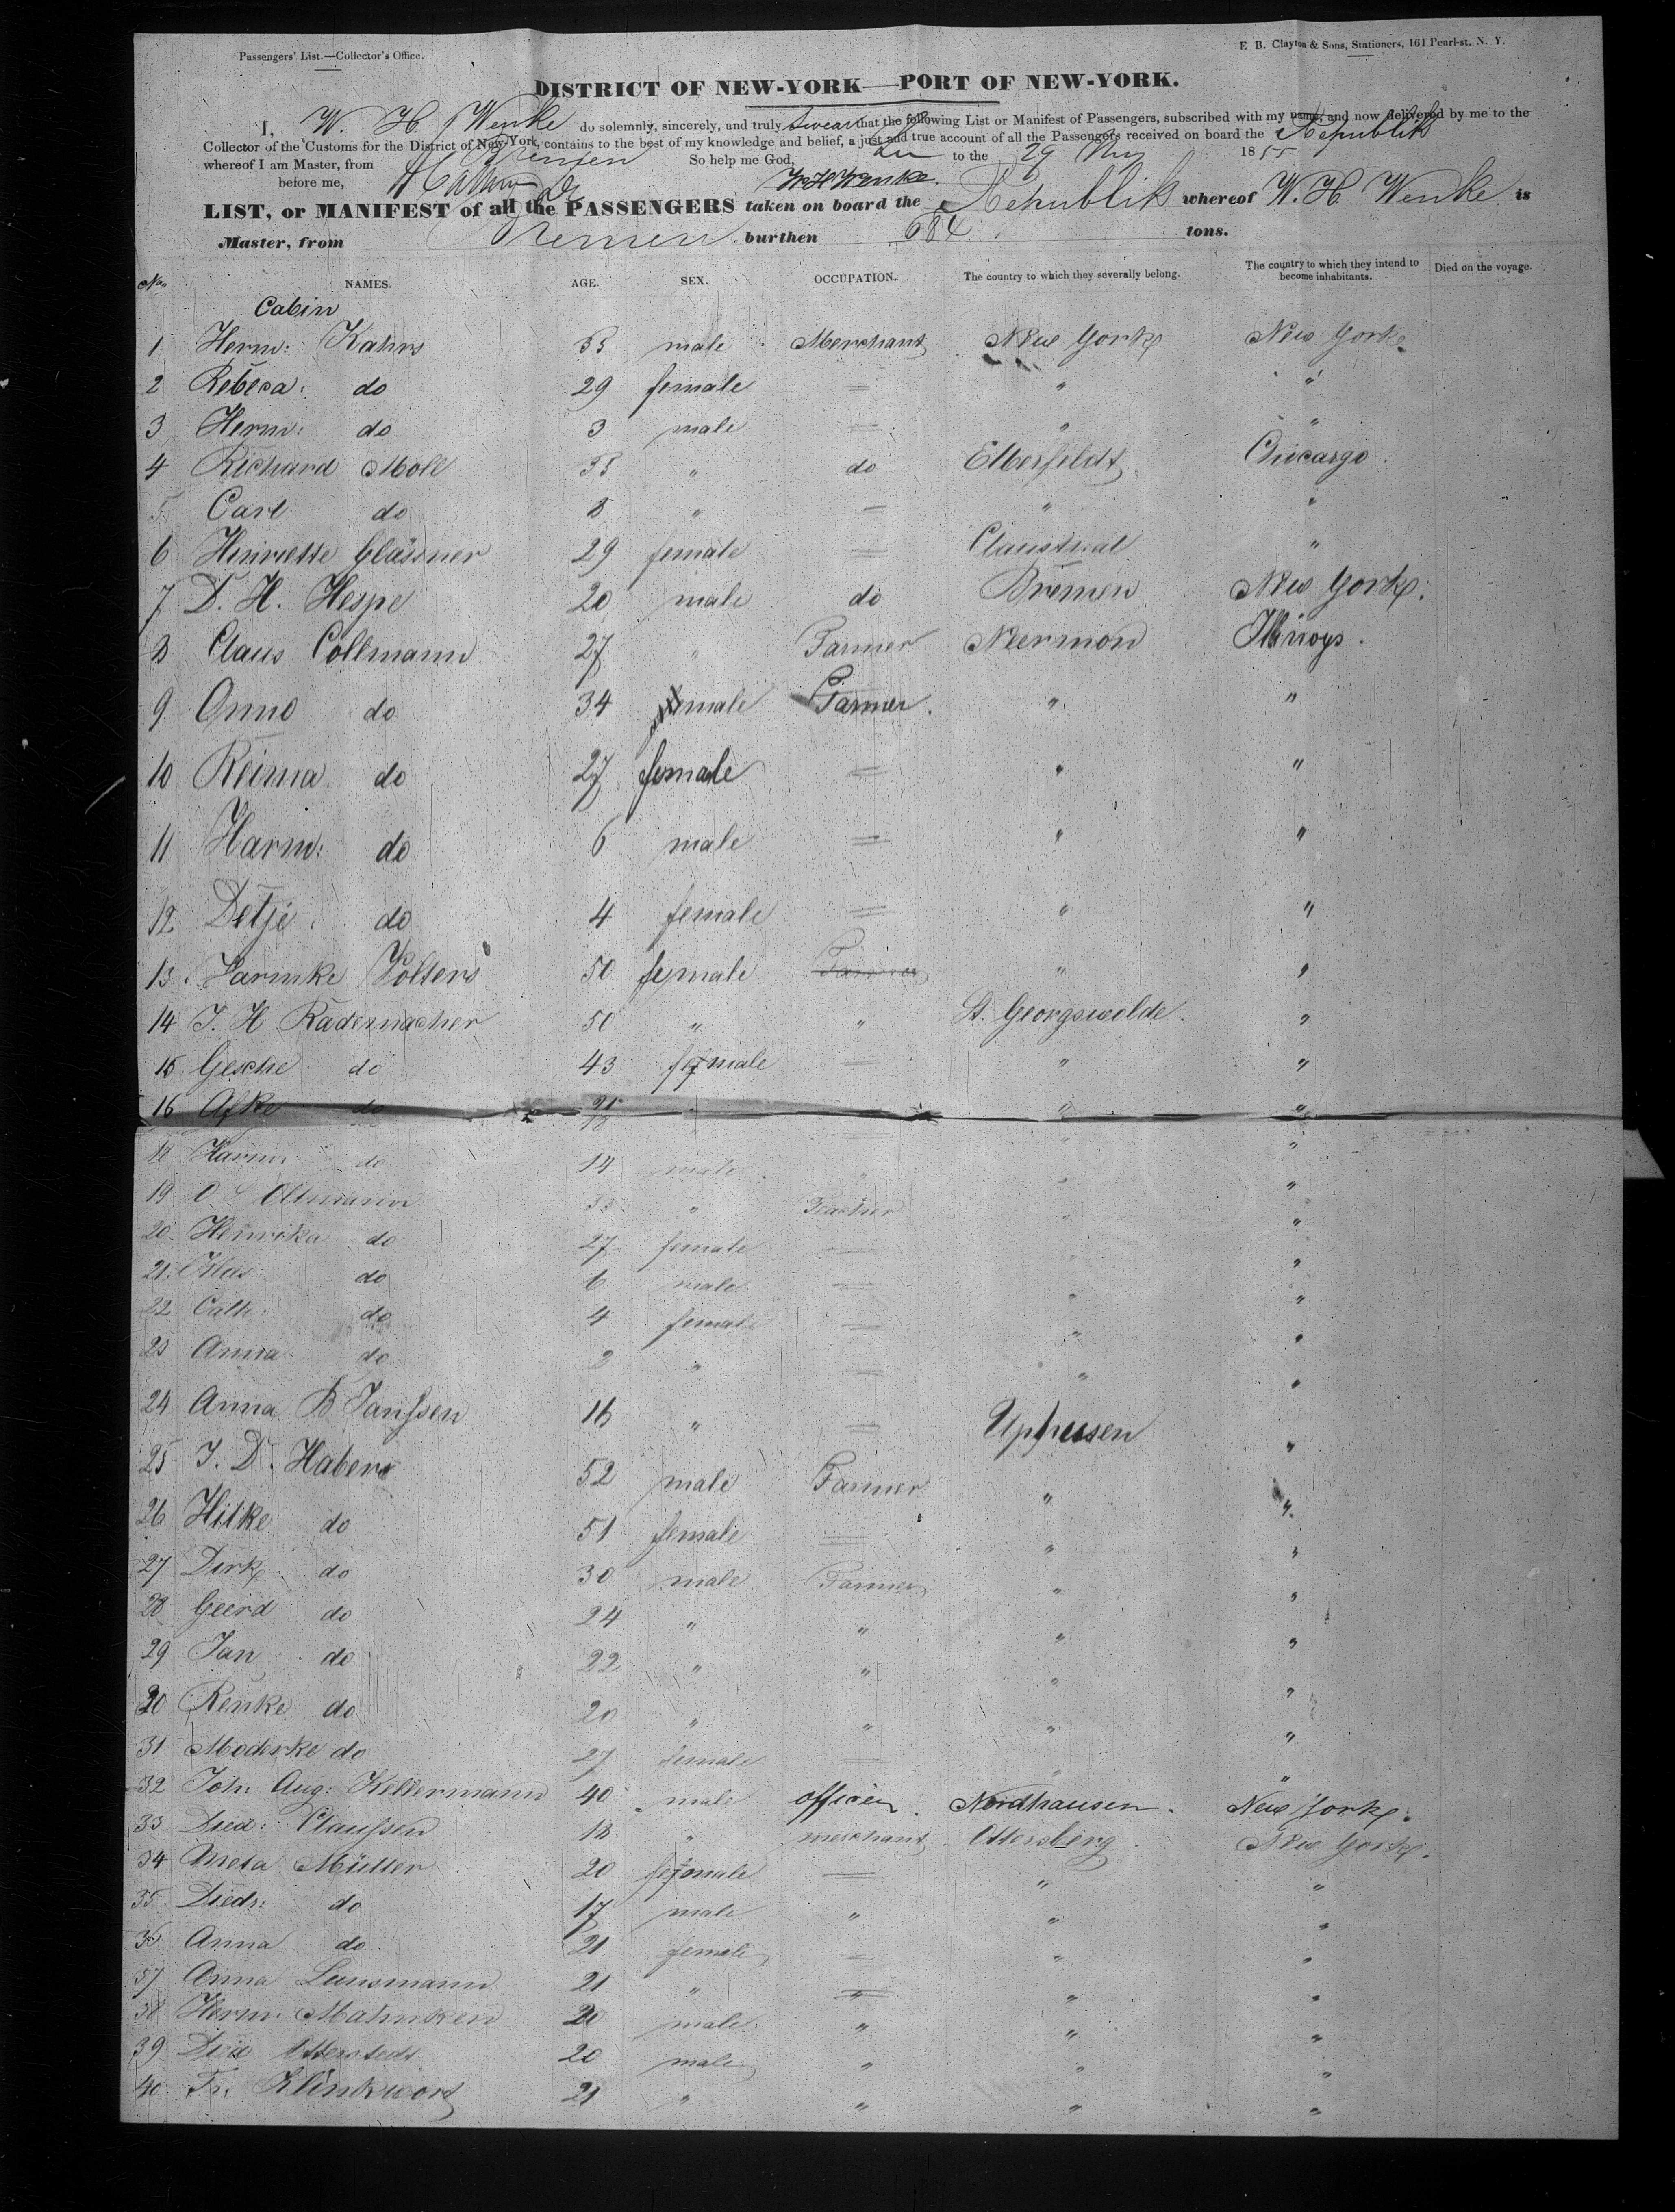 Passengers' List.—Collector's Office.
E. B. Clayton & Sons, Stationers, 161 Pearl-st. N. Y.
DISTRICT OF NEW-YORK—PORT OF NEW-YORK.
I, W. H. Wenke do solemnly, sincerely, and truly swear that the following List or Manifest of Passengers, subscribed with my name, and now delivered by me to the
Collector of the Customs for the District of New-York, contains to the best of my knowledge and belief, a just and true account of all the Passengers received on board the Republik
whereof I am Master, from Bremen So help me God, to the 29 1855
before me, W H Wenke.
LIST, or MANIFEST of all the PASSENGERS taken on board the Republik whereof W. H. Wenke is
Master, from Bremen burthen 684 tons.
No NAMES. AGE. SEX. OCCUPATION. The country to which they severally belong. The country to which they intend to become inhabitants. Died on the voyage.
Cabin
1 Herm: Kahrs 35 male Merchant New York New York
2 Rebeca: do 29 female = " "
3 Herm: do 3 male = " "
4 Richard Moll 38 " do Elberfeldt Chicargo.
5 Carl do 8 " = " "
6 Henriette Glässner 29 female = Claustual "
7 D. H. Hespe 20 male do Bremen New York.
8 Claus Collmann 27 " Farmer Neermon Illinoys.
9 Onno do 34 male Farmer. " "
10 Reima do 27 female = " "
11 Harm: do 6 male = " "
12 Detje. do 4 female = " "
13 Harmke Wolters 50 female Farmer " "
14 J. H Rademacher 50 " " St. Georgswolde. "
15 Gesche do 43 female = " "
16 Afke do 21 " " "
18 Harm: do 14 male " "
19 O Oltmann 35 " Teacher " "
20 Henrika do 27 female = " "
21. do 6 male = " "
22 Cath: do 4 female = " "
23 Anna do 2 " = " "
24 Anna B Janssen 16 " = Uphusen "
25 J. D. Habens 52 male Farmer " "
26 Hilke do 51 female = " "
27 Dirk do 30 male Farmer " "
28 Geerd do 24 " " " "
29 Jan do 22 " " " "
30 Renke do 20 " " " "
31 Moderke do 27 female = " "
32 Joh: Aug: Kellermann 40 male officer. Nordhausen. New York.
33 Died: Claussen 18 " merchant Ottersberg. New York.
34 Meta Müller 20 female = " "
35 Dieds: do 17 male " " "
36 Anna do 21 female = " "
37 Anna Lausmann 21 " = " "
38 Herm. Mahnken 20 male " " "
39 Died Otterstedt 20 male " " "
40 Fr. Klinkwort 21 " " " "